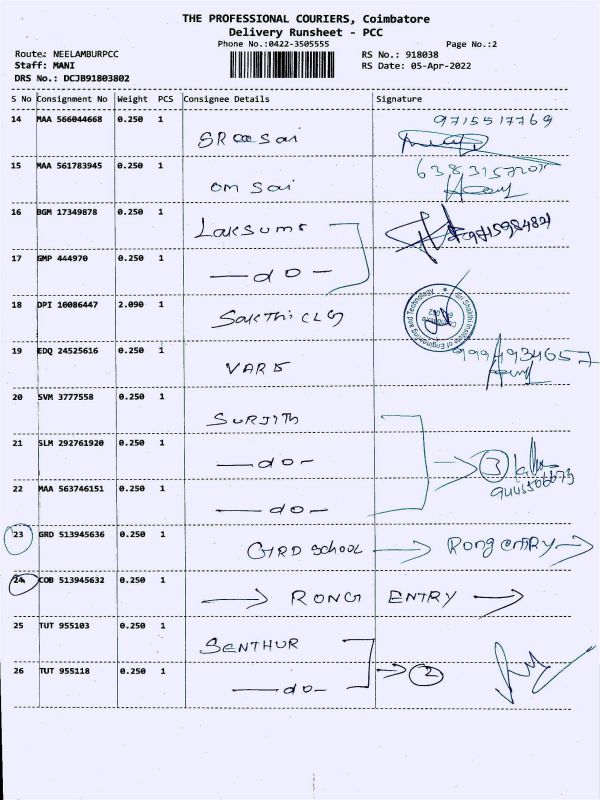 THE PROFESSIONAL COURIERS, Coimbatore
Delivery Runsheet - PCC
Phone No.:0422-3505555
Page No.:2
Route: NEELAMBURPCC
RS No.: 918038
Staff: MANI
RS Date: 05-Apr-2022
DRS No.: DCJB91803802
S No Consignment No Weight PCS Consignee Details Signature
14 MAA 566044668 0.250 1 sai 9715517769
15 MAA 561783945 0.250 1 om sai
16 BGM 17349878 0.250 1
17 GMP 444970 0.250 1 — do —
18 DPI 10086447 2.090 1 Sakthi CLG Sri Shakthi Institute of Engineering and Technology
19 EDQ 24525616 0.250 1 9994934657
20 SVM 3777558 0.250 1 SURJITH
21 SLM 292761920 0.250 1 — do — 3
22 MAA 563746151 0.250 1 — do —
23 GRD 513945636 0.250 1 GRD School Rong entry
24 COB 513945632 0.250 1 RONG ENTRY
25 TUT 955103 0.250 1 SENTHUR
26 TUT 955118 0.250 1 — do — 2